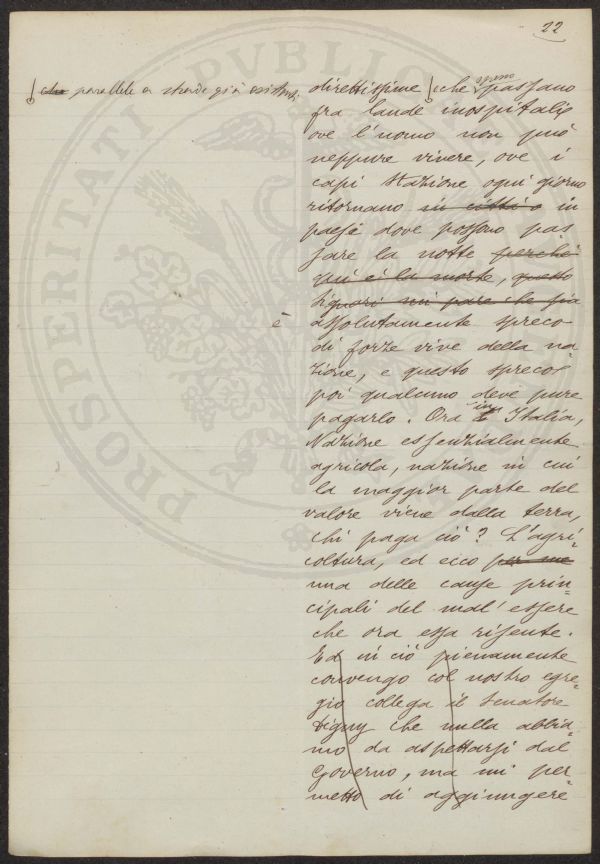 22
che parallele a strade già esistenti
direttissime che spesso passano
fra lande inospitali
ove l'uomo non può
neppure vivere, ove i
capi stazione ogni giorno
ritornano in città o in
paesi dove possono pas
sare la notte perché
qui ci è la morte, questo
signori mi pare che sia
è assolutamente spreco
di forze vive della na=
zione, e questo spreco
poi qualcuno deve pure
pagarlo. Ora in Italia,
Nazione essenzialmente
agricola, nazione in cui
la maggior parte del
valore viene dalla terra,
chi paga ciò? L'agri=
coltura, ed ecco per me
una delle cause prin=
cipali del mal'essere
che ora essa risente.
Ed in ciò pienamente
convengo col nostro egre=
gio collega il Senatore
Digny che nulla abbia=
mo da aspettarsi dal
Governo, ma mi per=
metto di aggiungere
PROSPERITATI PVBLICAE